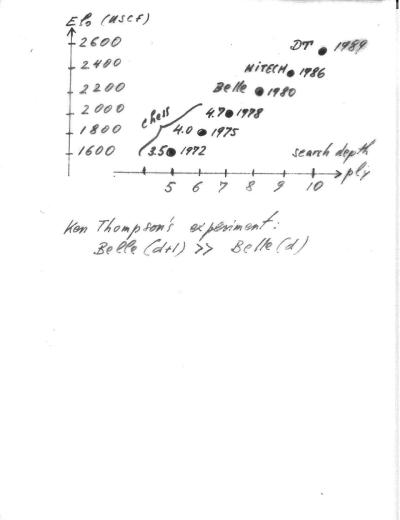 Elo (USCF)
2600
DT 1989
2400
HITECH 1986
2200
Belle 1980
2000
chess
4.7 1978
1800
4.0 1975
1600
3.5 1972
search depth
ply
5 6 7 8 9 10
Ken Thompson's experiment:
Belle (d+1) >> Belle (d)